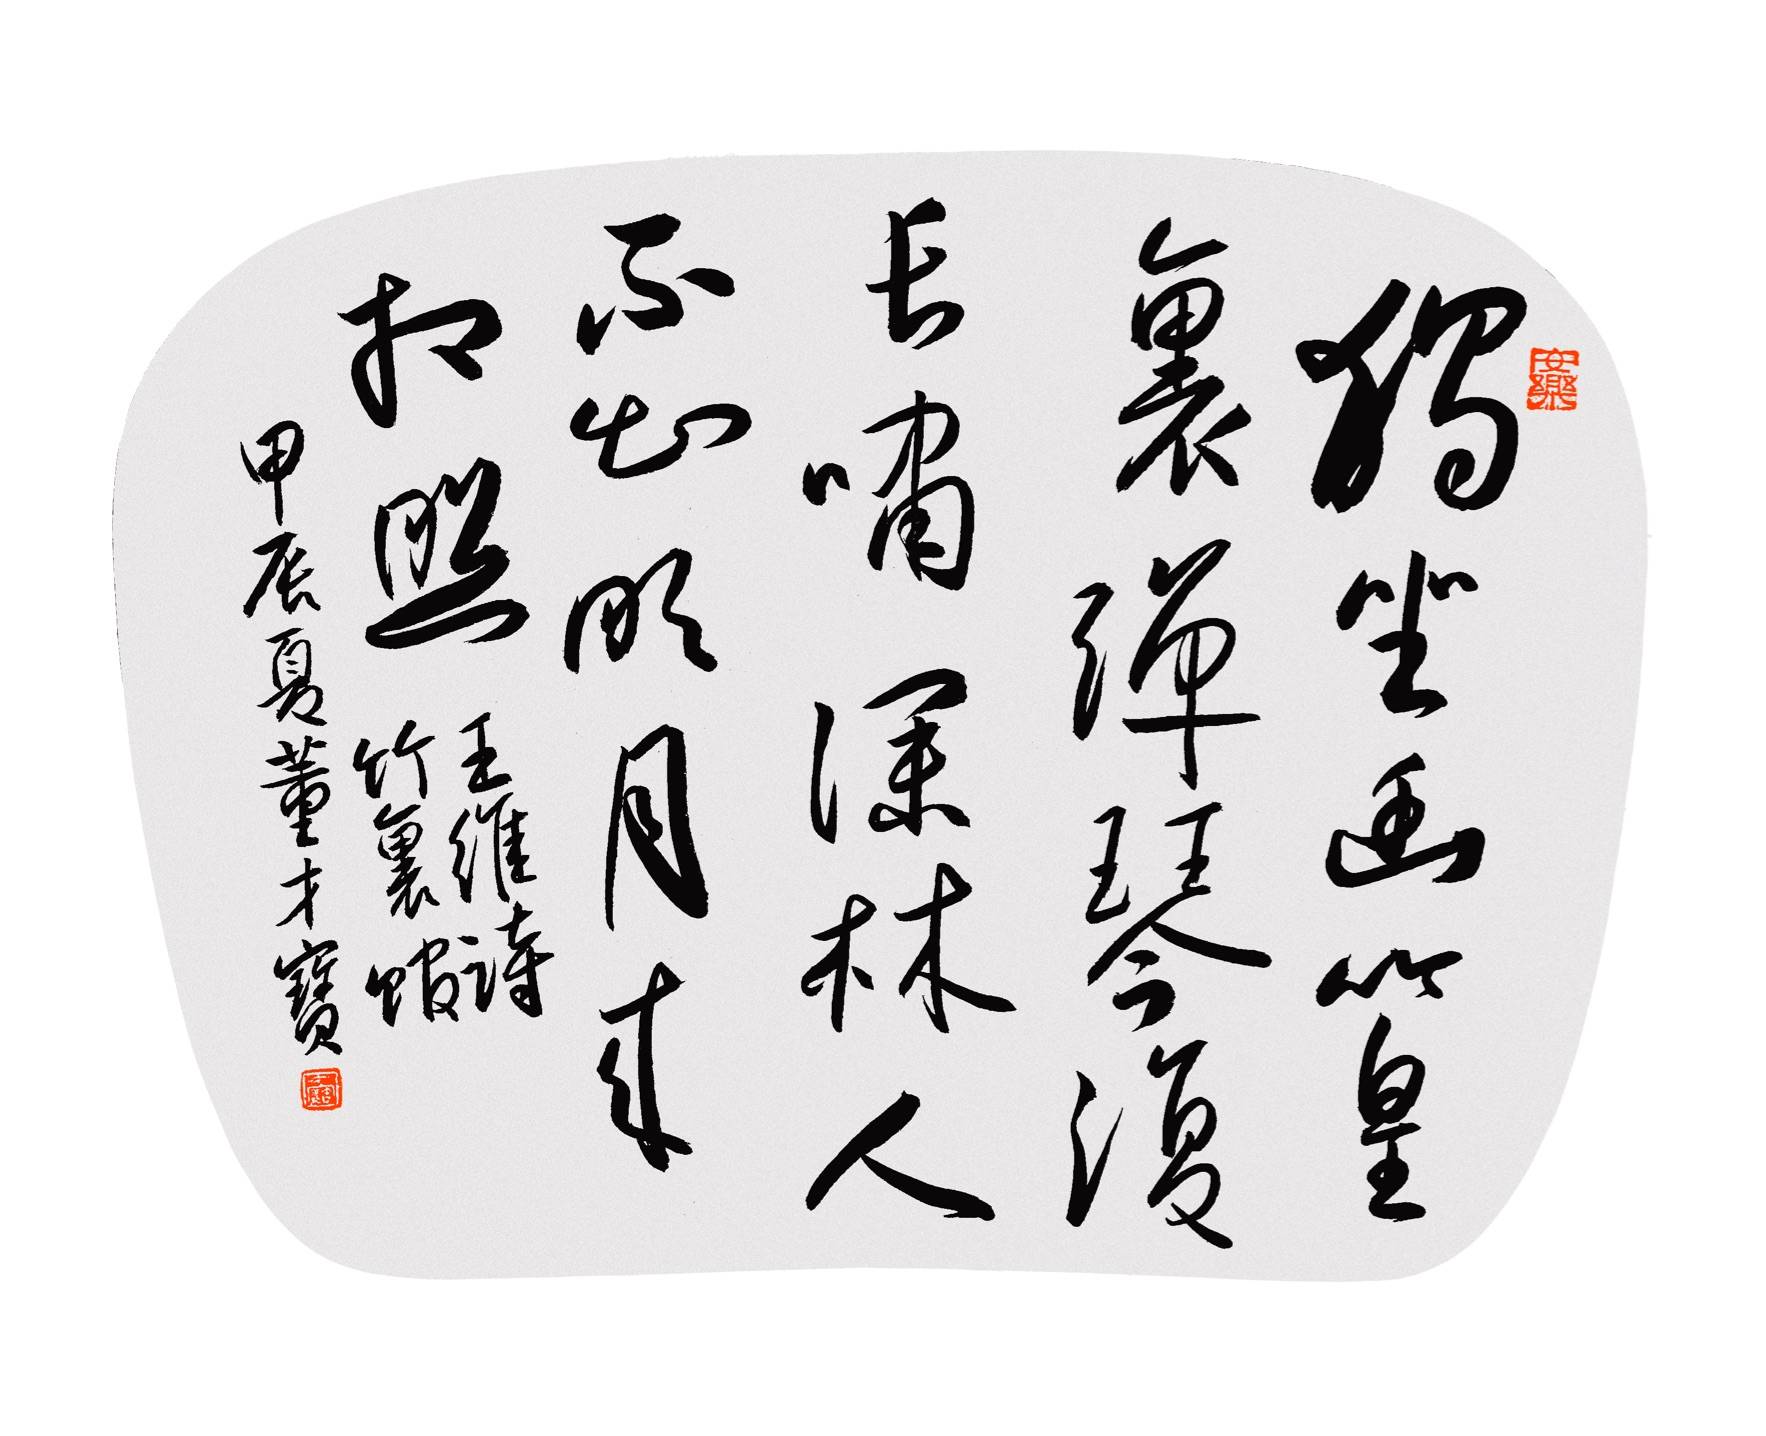 獨坐幽篁
裏彈琴復
長嘯深林人
不知明月来
相照
王維詩
竹裏館
甲辰夏董才寶
安樂
才寶